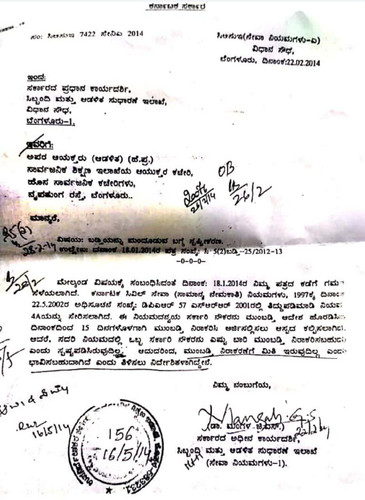 ಕರ್ನಾಟಕ ಸರ್ಕಾರ
ಸಂ: ಸಿಆಸುಇ 7422 ಸೇನಿಎ 2014
ಸಿಆಸುಇ(ಸೇವಾ ನಿಯಮಗಳು-ಎ)
ವಿಧಾನ ಸೌಧ,
ಬೆಂಗಳೂರು, ದಿನಾಂಕ:22.02.2014
ಇಂದ:
ಸರ್ಕಾರದ ಪ್ರಧಾನ ಕಾರ್ಯದರ್ಶಿ,
ಸಿಬ್ಬಂದಿ ಮತ್ತು ಆಡಳಿತ ಸುಧಾರಣೆ ಇಲಾಖೆ,
ವಿಧಾನ ಸೌಧ,
ಬೆಂಗಳೂರು-1.
ಇವರಿಗೆ:
ಅಪರ ಆಯುಕ್ತರು (ಆಡಳಿತ) (ಹೆ.ಪ್ರ.)
ಸಾರ್ವಜನಿಕ ಶಿಕ್ಷಣ ಇಲಾಖೆಯ ಆಯುಕ್ತರ ಕಚೇರಿ,
ಹೊಸ ಸಾರ್ವಜನಿಕ ಕಚೇರಿಗಳು,
ನೃಪತುಂಗ ರಸ್ತೆ, ಬೆಂಗಳೂರು.
OB
26/2
ಮಾನ್ಯರೆ,
28-2-14
ವಿಷಯ: ಬಡ್ತಿಯನ್ನು ಮುಂದೂಡುವ ಬಗ್ಗೆ ಸ್ಪಷ್ಟೀಕರಣ.
ಉಲ್ಲೇಖ: ದಿನಾಂಕ 18.01.2014ರ ಪತ್ರ ಸಂಖ್ಯೆ: ಸಿ 5(2)ಬಡ್ತಿ.-25/2012-13
-0-0-0-
ಮೇಲ್ಕಂಡ ವಿಷಯಕ್ಕೆ ಸಂಬಂಧಿಸಿದಂತೆ ದಿನಾಂಕ: 18.1.2014ರ ನಿಮ್ಮ ಪತ್ರದ ಕಡೆಗೆ ಗಮನ
ಸೆಳೆಯಲಾಗಿದೆ. ಕರ್ನಾಟಕ ಸಿವಿಲ್ ಸೇವಾ (ಸಾಮಾನ್ಯ ನೇಮಕಾತಿ) ನಿಯಮಗಳು, 1997ಕ್ಕೆ ದಿನಾಂಕ
22.5.2002ರ ಅಧಿಸೂಚನೆ ಸಂಖ್ಯೆ: ಡಿಪಿಎಆರ್ 57 ಎಸ್‌ಆರ್‌ಆರ್ 2001ರಲ್ಲಿ ತಿದ್ದುಪಡಿಮಾಡಿ ನಿಯಮ
4Aಯನ್ನು ಸೇರಿಸಲಾಗಿದೆ. ಈ ನಿಯಮದನ್ವಯ ಸರ್ಕಾರಿ ನೌಕರನು ಮುಂಬಡ್ತಿ ಆದೇಶ ಹೊರಡಿಸಿದ
ದಿನಾಂಕದಿಂದ 15 ದಿನಗಳೊಳಗಾಗಿ ಮುಂಬಡ್ತಿ ನಿರಾಕರಿಸಿ ಅರ್ಜಿಸಲ್ಲಿಸಲು ಆಸ್ಪದ ಕಲ್ಪಿಸಲಾಗಿದೆ.
ಆದರೆ, ಸದರಿ ನಿಯಮದಲ್ಲಿ ಒಬ್ಬ ಸರ್ಕಾರಿ ನೌಕರನು ಎಷ್ಟು ಬಾರಿ ಮುಂಬಡ್ತಿ ನಿರಾಕರಿಸಬಹುದು
ಎಂದು ಸ್ಪಷ್ಟಪಡಿಸಿರುವುದಿಲ್ಲ. ಆದುದರಿಂದ, ಮುಂಬಡ್ತಿ ನಿರಾಕರಣೆಗೆ ಮಿತಿ ಇರುವುದಿಲ್ಲ ಎಂದು
ಭಾವಿಸಬಹುದಾಗಿದೆ ಎಂದು ತಿಳಿಸಲು ನಿರ್ದೇಶಿತಳಾಗಿದ್ದೇನೆ.
ನಿಮ್ಮ ನಂಬುಗೆಯ,
16/5/14
156
16/5/14
(ಡಾ. ಮಂಗಳ ಜಿ.ಎಸ್.)
ಸರ್ಕಾರದ ಅಧೀನ ಕಾರ್ಯದರ್ಶಿ,
ಸಿಬ್ಬಂದಿ ಮತ್ತು ಆಡಳಿತ ಸುಧಾರಣೆ ಇಲಾಖೆ
(ಸೇವಾ ನಿಯಮಗಳು-1).